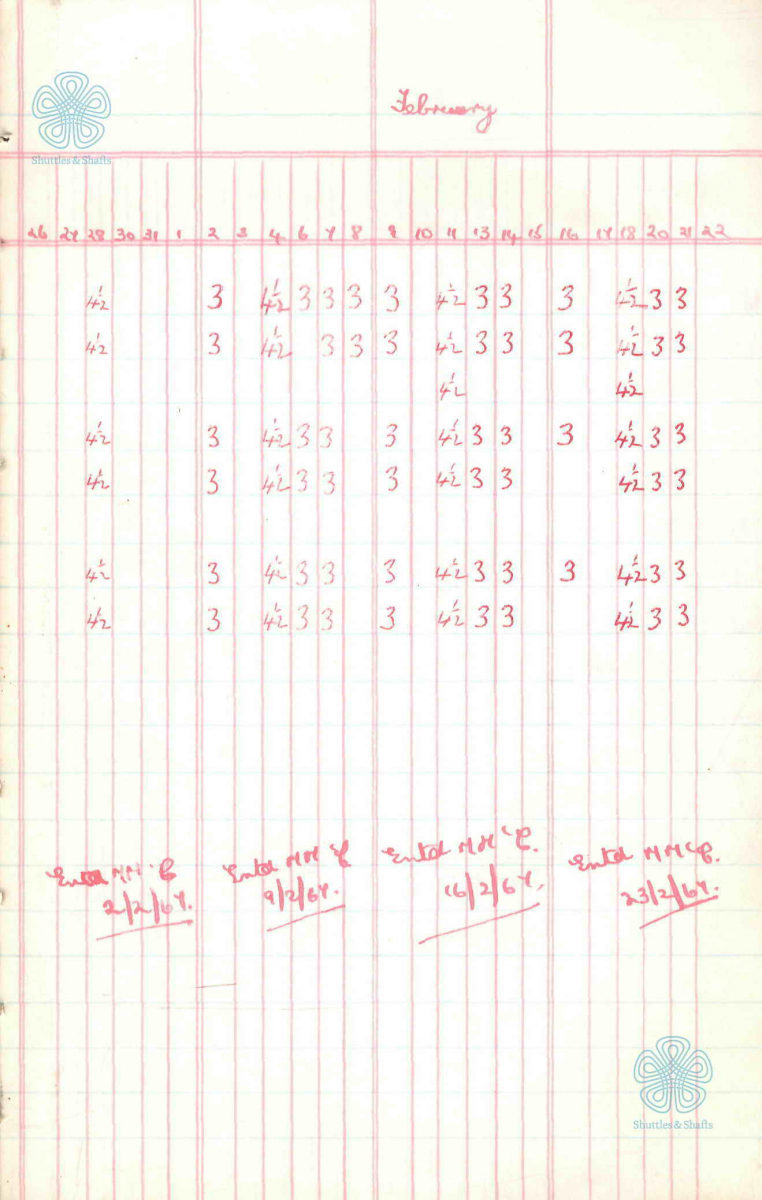 February
Shuttles & Shafts
26 27 28 30 31 1 2 3 4 6 7 8 9 10 11 13 14 15 16 17 18 20 21 22
4½ 3 4½ 3 3 3 3 4½ 3 3 3 4½ 3 3
4½ 3 4½ 3 3 3 4½ 3 3 3 4½ 3 3
4½ 4½
4½ 3 4½ 3 3 3 4½ 3 3 3 4½ 3 3
4½ 3 4½ 3 3 3 4½ 3 3 4½ 3 3
4½ 3 4½ 3 3 3 4½ 3 3 3 4½ 3 3
4½ 3 4½ 3 3 3 4½ 3 3 4½ 3 3
Entd MM
2/2/67.
Entd MM
9/2/67.
Entd MM
16/2/67.
Entd MM
23/2/67.
Shuttles & Shafts